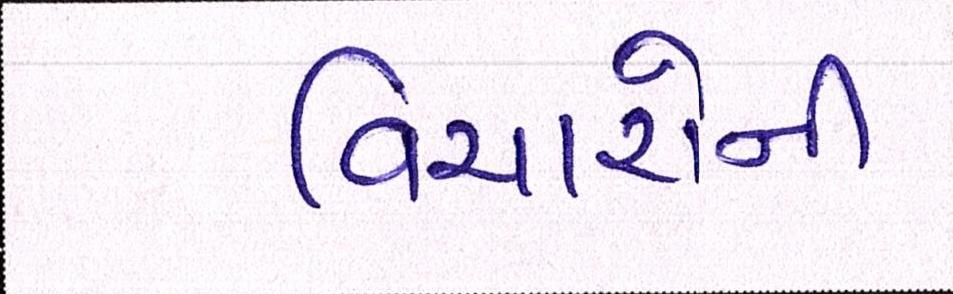 વિચારોની